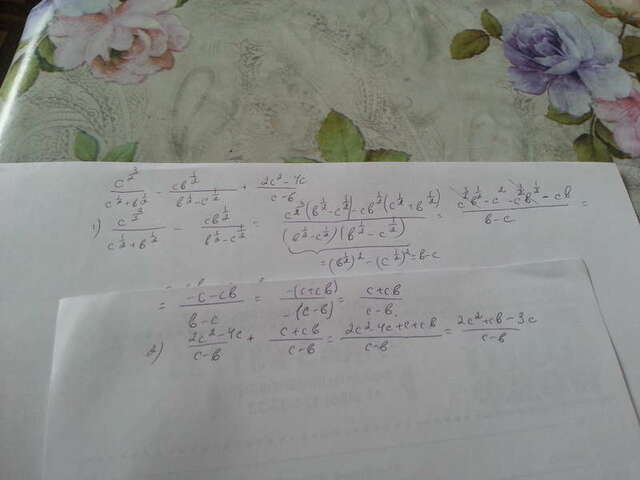 c^(3/2)/(c^(1/2)+b^(1/2)) - cb^(1/2)/(b^(1/2)-c^(1/2)) + (2c²-4c)/(c-b)
1) c^(3/2)/(c^(1/2)+b^(1/2)) - cb^(1/2)/(b^(1/2)-c^(1/2)) = (c^(3/2)(b^(1/2)-c^(1/2))-cb^(1/2)(c^(1/2)+b^(1/2)))/((b^(1/2)-c^(1/2))(b^(1/2)-c^(1/2))) = (c^(3/2)b^(1/2)-c²-c^(3/2)b^(1/2)-cb)/(b-c) =
=(b^(1/2))²-(c^(1/2))²=b-c
= (-c-cb)/(b-c) = (-(c+cb))/(-(c-b)) = (c+cb)/(c-b).
2) (2c²-4c)/(c-b) + (c+cb)/(c-b) = (2c²4c+c+cb)/(c-b) = (2c²+cb-3c)/(c-b)